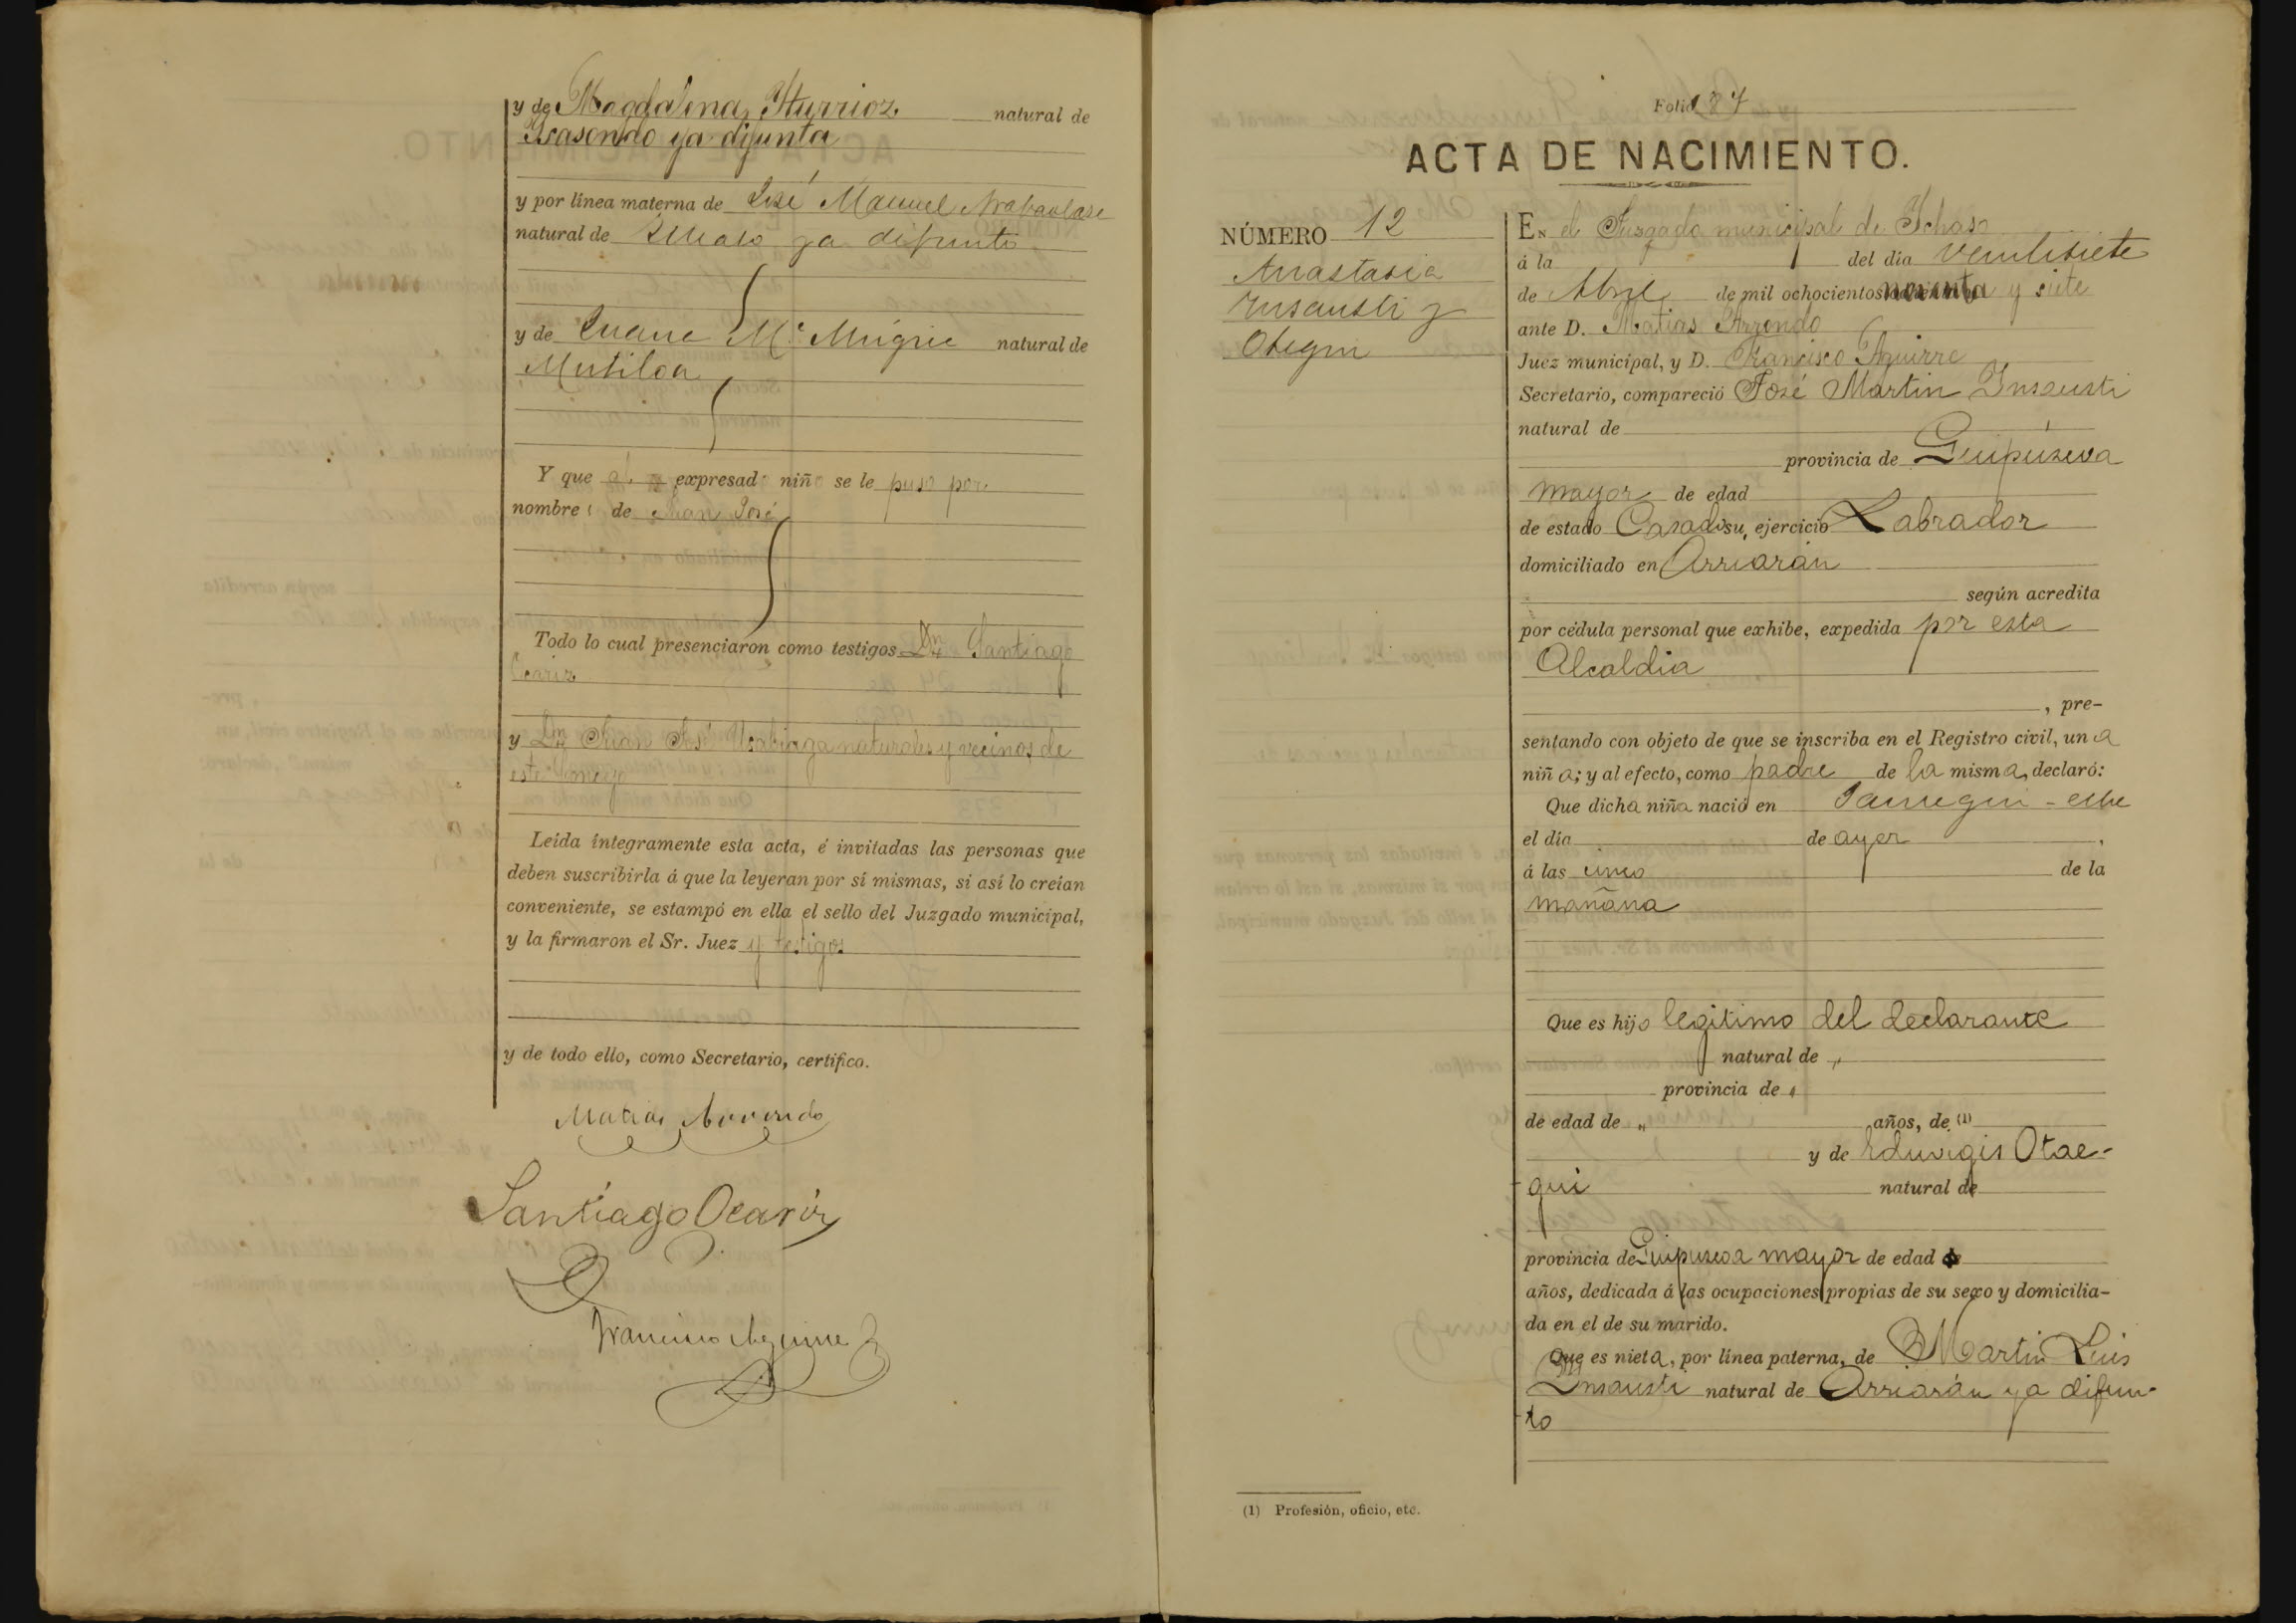 y de Magdalena Yturrioz natural de
Ysasondo ya difunta
y por línea materna de José Manuel
natural de ya difunto
y de Juana Mª Múgica natural de
Mutiloa
Y que al expresado niño se le puso por
nombre de Juan José
Todo lo cual presenciaron como testigos Dn Santiago
Ocariz
y Dn Juan José Usabiaga naturales y vecinos de
este Concejo
Leída íntegramente esta acta, é invitadas las personas que
deben suscribirla á que la leyeran por sí mismas, si así lo creían
conveniente, se estampó en ella el sello del Juzgado municipal,
y la firmaron el Sr. Juez y testigos
y de todo ello, como Secretario, certifico.
Matias Arrondo
Santiago Ocariz
Francisco Aguirre
Folio 87
ACTA DE NACIMIENTO.
NÚMERO 12
Anastasia
Insausti y
Otegui
En el Juzgado municipal de Ichaso
á la del día veintisiete
de Abril de mil ochocientos noventa y siete
ante D. Matias Arrondo
Juez municipal, y D. Francisco Aguirre
Secretario, compareció José Martin Insausti
natural de
provincia de Guipúzcoa
mayor de edad
de estado Casado su ejercicio Labrador
domiciliado en Arriarán
según acredita
por cédula personal que exhibe, expedida por esta
Alcaldia
, pre-
sentando con objeto de que se inscriba en el Registro civil, una
niña; y al efecto, como padre de la misma, declaró:
Que dicha niña nació en
el día de ayer ,
á las cinco de la
mañana
Que es hijo legitimo del declarante
natural de „
provincia de „
de edad de „ años, de (1)
y de Eduvigis Otae-
gui natural de
provincia de Guipuzcoa mayor de edad
años, dedicada á las ocupaciones propias de su sexo y domicilia-
da en el de su marido.
Que es nieta, por línea paterna, de Martin Luis
Insausti natural de Arriarán ya difun-
to
(1) Profesión, oficio, etc.